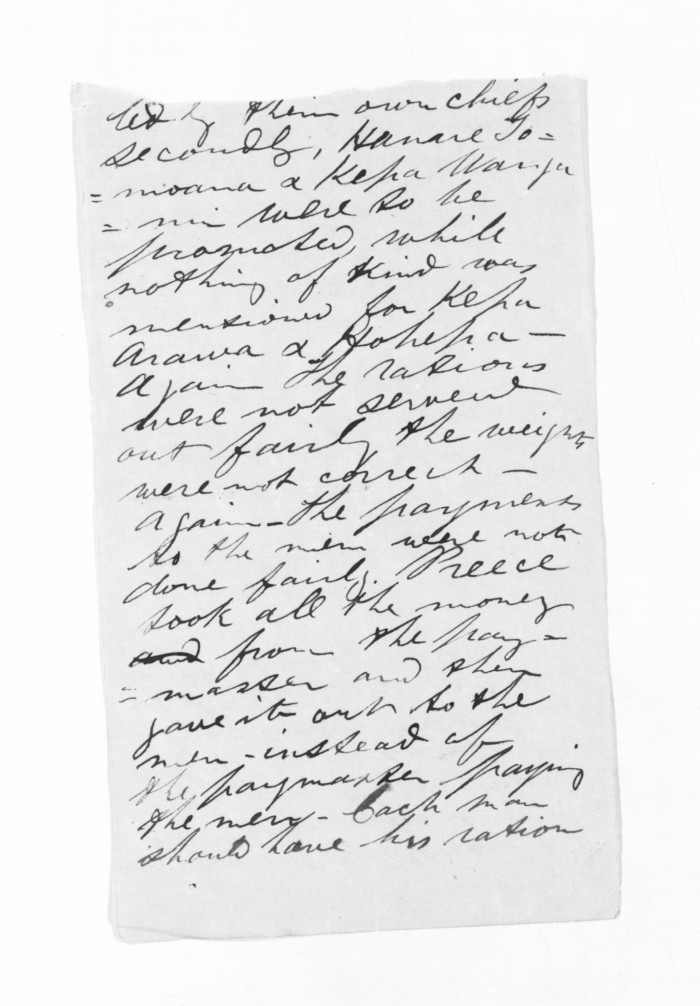 led by their own chiefs
secondly, Hanare To=
=moana & Kepa Wanga
=nui were to be
promoted, while
nothing of kind was
mentioned for Kepa
Arawa & Hohepa—
Again the rations
were not served
out fairly the weights
were not correct —
Again — the payments
to the men were not
done fairly. Preece
took all the money
and from the pay=
=master and then
gave it out to the
men - instead of
the paymaster paying
the men — Each man
should have his ration